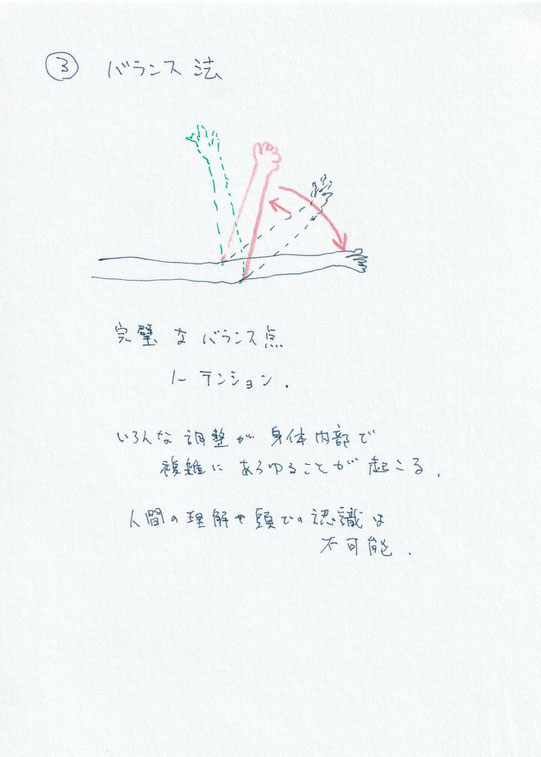 ③ バランス法
完璧なバランス点
ノーテンション.
いろんな調整が身体内部で
複雑にあらゆることが起こる.
人間の理解や頭での認識は
不可能.